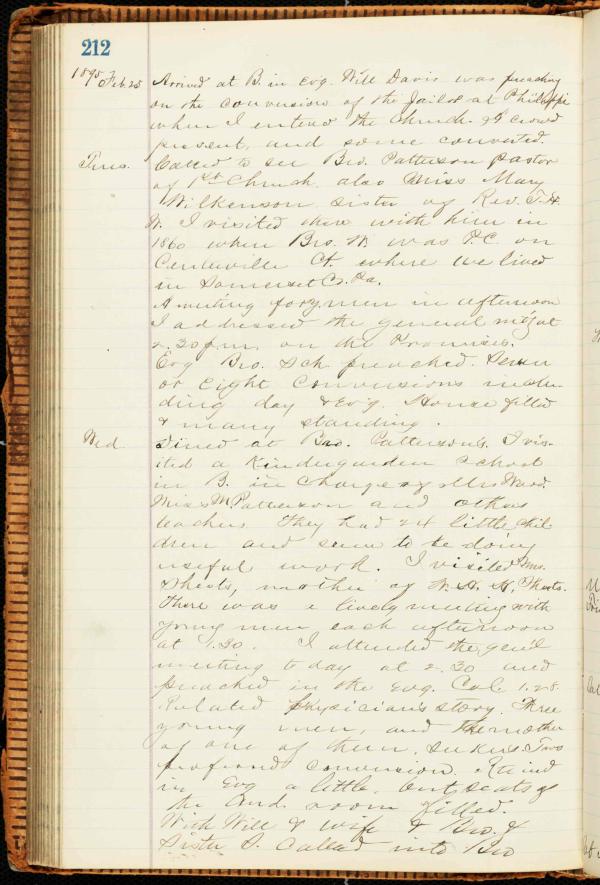 212
1895 Feb. 25 Arrived at B. in Evg. Will Davis was preaching
on the conversion of the Jailor at Philippi
when I entered the Church. A crowd
present, and some converted.
Tues. Called to see Bro. Patterson pastor
of 1st Church also Miss Mary
Wilkenson sister of Rev. T. H.
W. I visited there with him in
1860 when Bro. W. was P.C. on
Centerville Ct. where we lived
in Somerset Co. Pa.
A meeting for y. men in afternoon
I addressed the general mtg at
2.30 p.m. on the Promises.
Evg Bro. Sch. preached. Seven
or eight conversions inclu-
ding day & Ev'g. House filled
& many standing.
Wed. Dined at Bro. Patterson's. I vis-
ited a Kindergarden School
in B. in charge of Mrs Ward.
Miss M. Patterson and other
teachers. They had 24 little chil
dren and seem to be doing
useful work. I visited Mrs.
Sheets, mother of
There was a lively meeting with
young men each afternoon
at 1.30. I attended the gen'l
meeting to day at 2.30 and
preached in the Evg. Col. 1.28.
Related physician's story. Three
young men, and the mother
of one of them, seekers. Two
profound conversion.
in Evg a little, but seats of
the Aud. room filled.
With Will & wife & Bro. &
Sister P. called into Bro